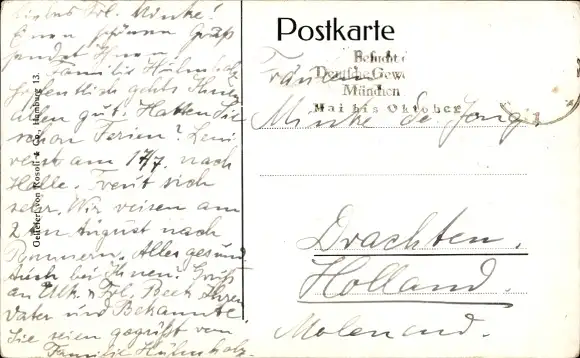 Liebes Frl. Minke!
Einen schönen Gruß
sendet Ihnen
Familie Hülmholz
hoffentlich gehts Ihnen
allen gut. Hatten Sie
schon Ferien? Leni
reist am 17/7. nach
Halle. Freut sich
sehr. Wir reisen am
2ten August nach
Pommern. Alles gesund
auch bei Ihnen? Gruß
an Frl. Beek Ihren
Vater und Bekannte
Sie seien gegrüßt von
Familie Hülmholz.
Geliefert von Rosoll & Co., Hamburg 13.
Postkarte
Besucht
Deutsche Gewe
München
Mai bis Oktober
Fräulein
Minke de Jong
Drachten.
Holland.
Molenend.